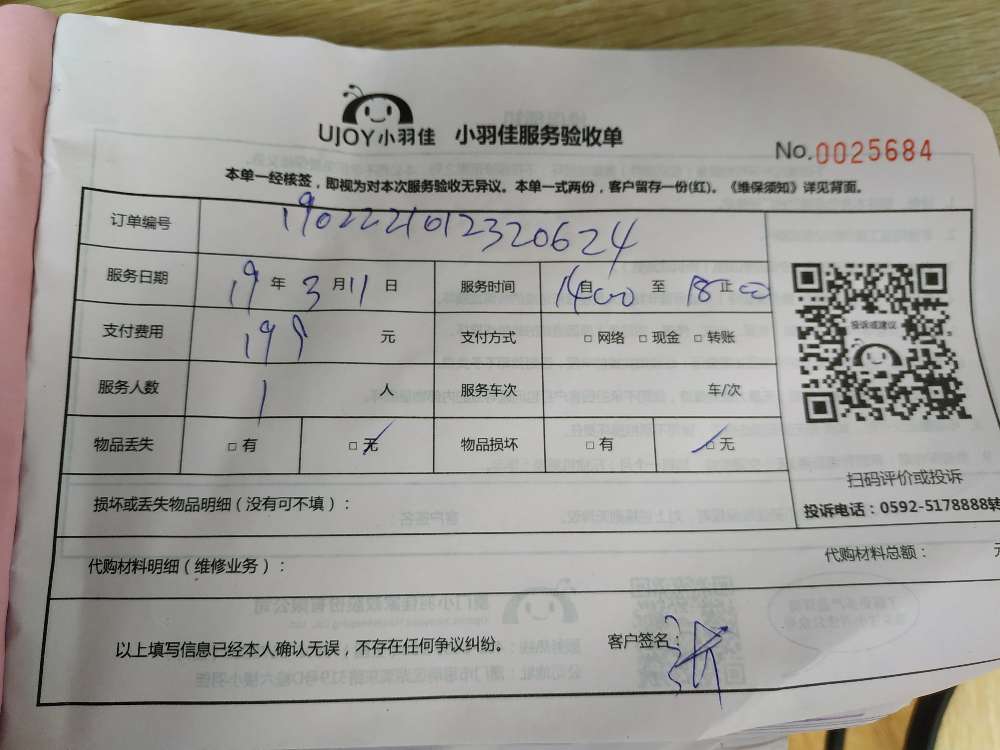 UJOY小羽佳 小羽佳服务验收单
No.0025684
本单一经核签，即视为对本次服务验收无异议。本单一式两份，客户留存一份(红)。《维保须知》详见背面。
订单编号 1902221012320624
服务日期 19年3月11日 服务时间 自1400至18止00
支付费用 198元 支付方式 □网络 □现金 □转账
服务人数 1人 服务车次 车/次
物品丢失 □有 □无 物品损坏 □有 □无
投诉或建议
扫码评价或投诉
投诉电话：0592-5178888转
损坏或丢失物品明细（没有可不填）：
代购材料明细（维修业务）： 代购材料总额：
以上填写信息已经本人确认无误，不存在任何争议纠纷。 客户签名：